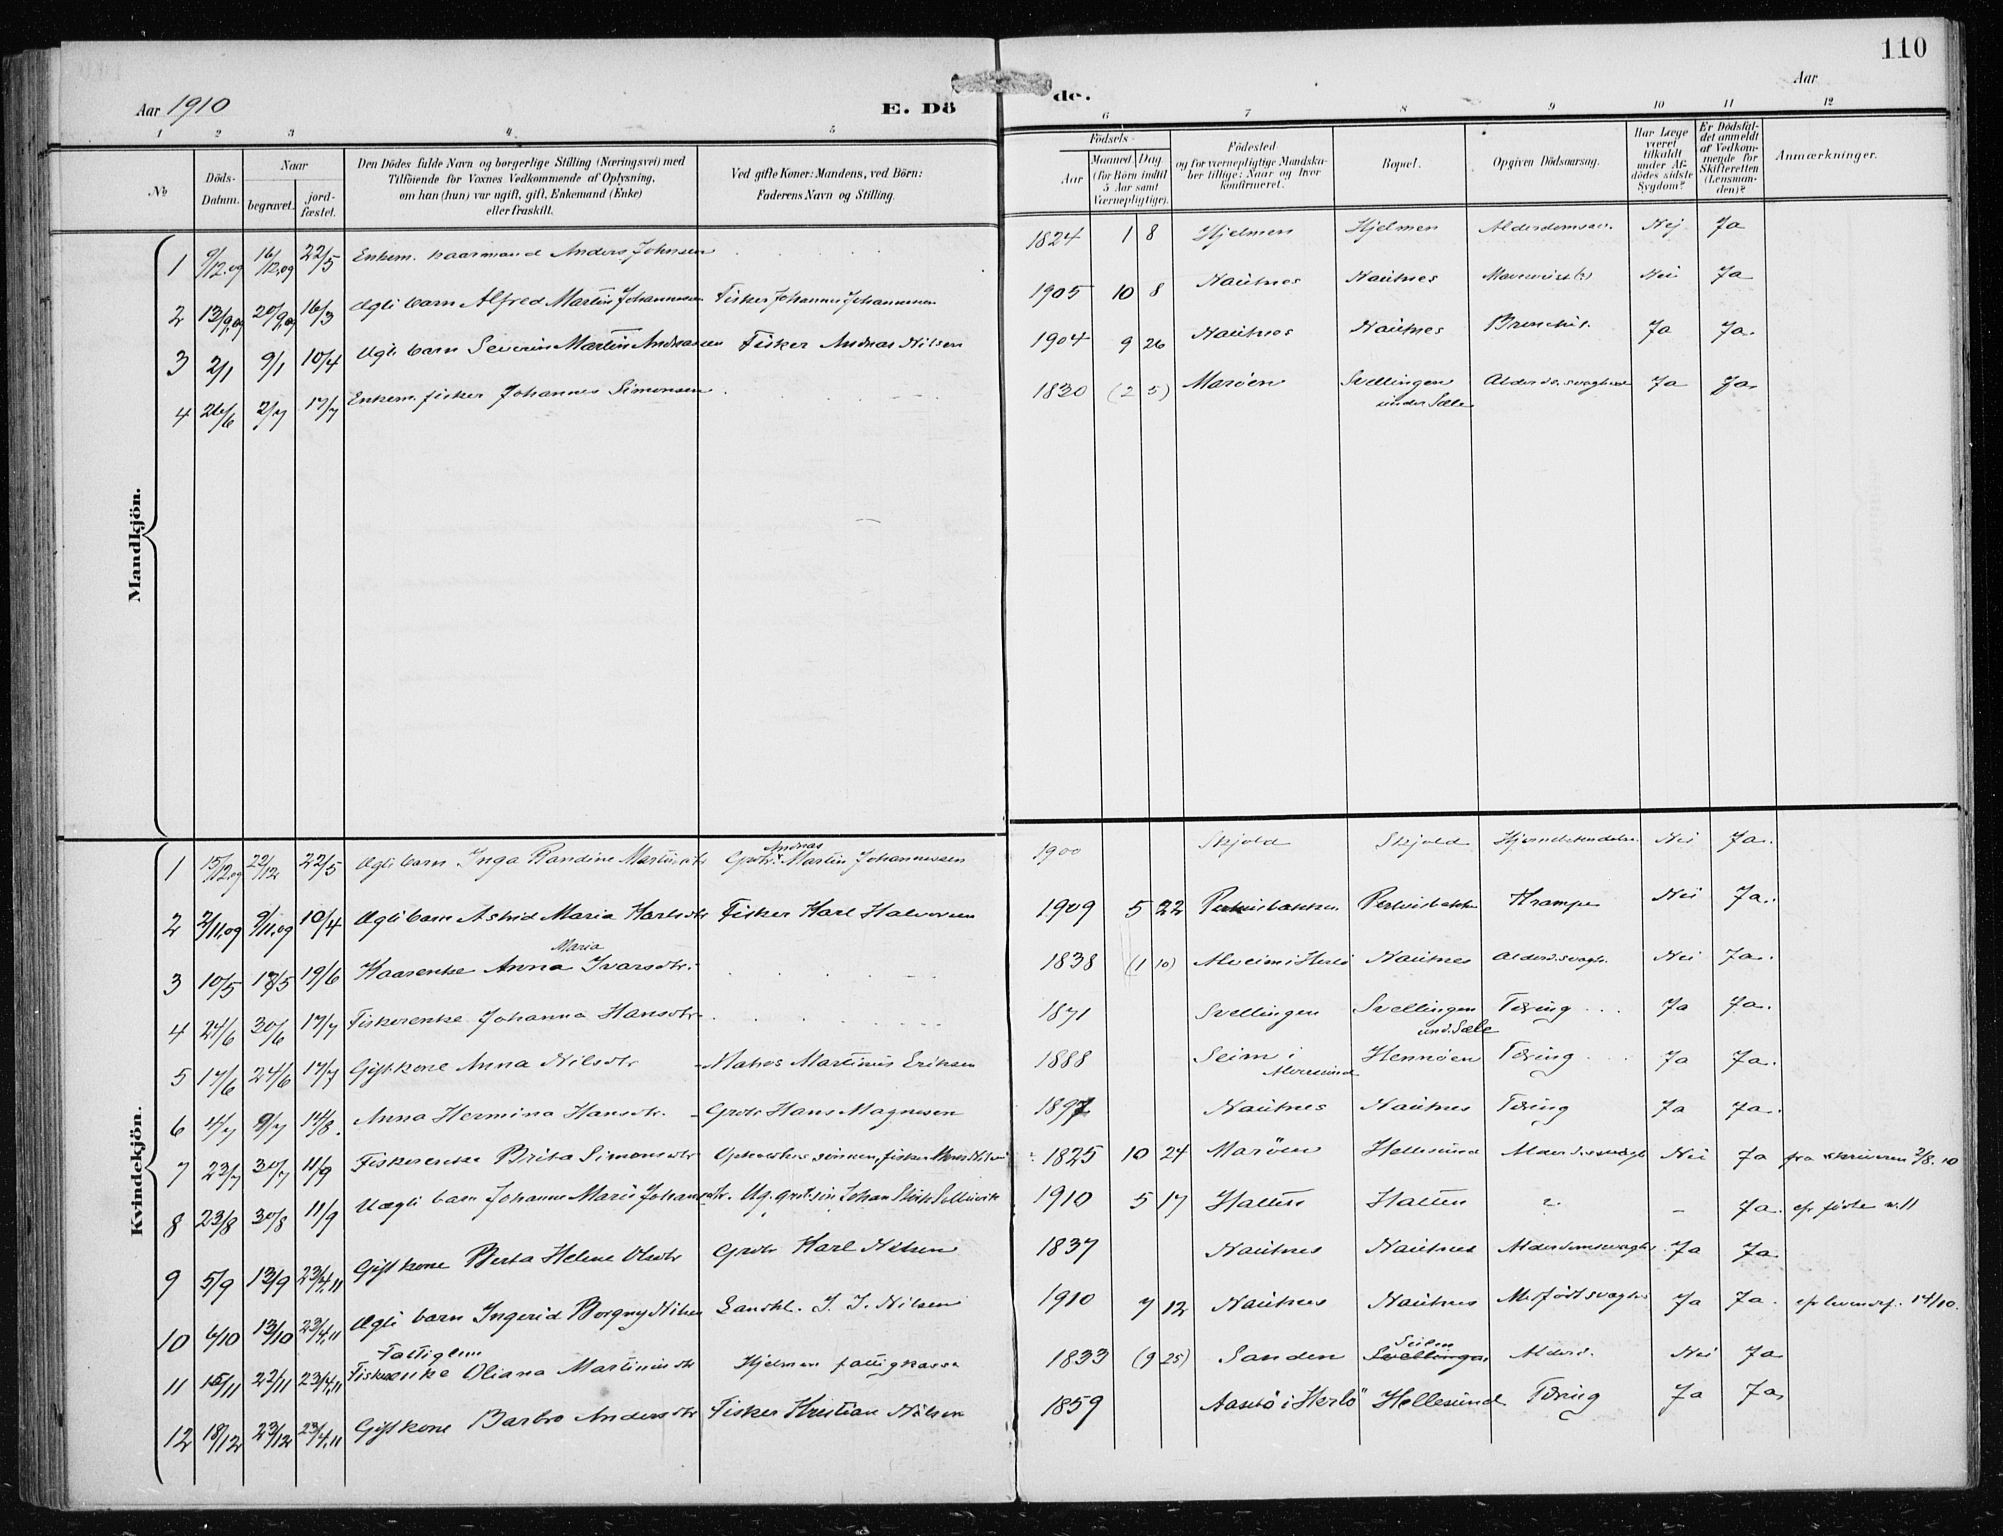 110
Aar 1910
E. Dö
de.
Aar
1 2 3 4 5 6 7 8 9 10 11 12
No
Döds-Datum.
Naar
begravet.
jord-fæstet.
Den Dödes fulde Navn og borgerlige Stilling (Næringsvei) med
Tilföiende for Voxnes Vedkommende af Oplysning,
om han (hun) var ugift, gift, Enkemand (Enke)
eller fraskilt.
Ved gifte Koner: Mandens, ved Börn:
Faderens Navn og Stilling.
Födsels-
Aar
Maaned Dag
(for Börn indtil
5 Aar samt
Værnepligtige).
Födested
og for værnepligtige Mandska-
ber tillige: Naar og hvor
konfirmeret.
Bopæl.
Opgiven Dödsaarsag.
Har Læge
været
tilkaldt
under Af-
dödes sidste
Sygdom?
Er Dödsfal-
det anmeldt
af Vedkom-
mende for
Skifteretten
(Lensman-
den)?
Anmærkninger.
Mandkjön.
1 9/12.09 16/12.09 22/5 Enkem. kaarmand Anders Johnsen 1824 1 8 Hjelmen Hjelmen Nej Ja
2 13/9.09 20/9.09 16/3 Ægte barn Alfred Martin Johannessen Fisker Johannes Johannessen 1905 10 8 Nautnes Nautnes Nei Ja
3 2/1 9/1 10/4 Ægte barn Severin Martin Andreassen Fisker Andreas Nilsen 1904 9 26 Nautnes Nautnes Ja Ja.
4 26/6 2/7 17/7 Enkem. fisker Johannes Simonsen 1830 (2 5) Marøen Svellingen Alderds. svaghed Ja Ja.
under Sæle
Kvindekjön.
Andreas
1 15/12.09 22/12 22/5 Ægte barn Inga Randine Martinsdtr Grdbr. Martin Johannessen 1900 Skjold Skjold Nei Ja.
2 2/11.09 9/11.09 10/4 Ægte barn Astrid Maria Karlsdtr Fisker Karl Halvorsen 1909 5 22 Krampe Nei Ja.
Maria
3 10/5 17/5 19/6 Kaarenke Anna Ivarsdtr. 1838 (1 10) Alveim i Herlö Nautnes Alderd.svagh. Nei Ja.
4 24/6 30/6 17/7 Fiskerenke Johanna Hansdtr. 1871 Svellingen Svellingen Tæring Ja Ja.
und. Sæle
5 17/6 24/6 17/7 Gift kone Anna Nilsdtr Matros Martinus Eriksen 1888 Seim i Hennøen Tæring Ja Ja.
Alversund
6 4/7 9/7 14/8. Anna Hermina Hansdtr. Grdbr Hans Magnesen 1897 Nautnes Nautnes Tæring Ja Ja.
7 23/7 30/7 11/9 Fiskerenke Brita Simonsdtr sönnen, fisker 1825 10 24 Marøen Hellesund Alderdssvagh Nei Ja fra skriveren 2/8.10
8 23/8 30/8 11/9 Uægte barn Johanne Marie Ug. 1910 5 17 Hatten Hatten ? – Ja.
9 5/9 13/9 23/4.11 Gift kone Berta Helene Olsdtr Grdbr Karl Nilsen 1837 Nautnes Nautnes Alderdomssvagh. Ja Ja.
10 6/10 13/10 23/4.11 Ægte barn Ingerid Borgny Nilsen Landhl. J. J. Nilsen 1910 7 12 Nautnes Nautnes Medfödt svaghed Ja Ja. 14/10.
Fattiglem Seilen
11 15/11 22/11 23/4.11 Fiskerenke Oliana Martinusdtr Hjelmen fattigkasse 1833 (9 25) Sanden Svellingen Alderd. Nei Ja
12 18/12 23/12 23/4.11 Gift kone Barbro Andersdtr Fisker Kristian Nilsen 1859 Aasebö i Herlö Hellesund Tæring Ja Ja.